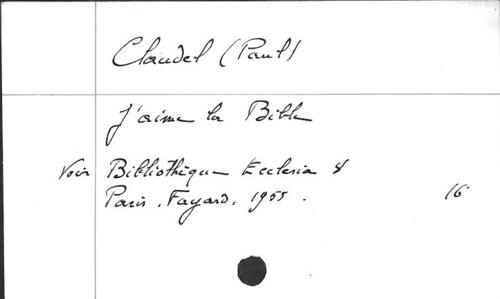 Claudel (Paul)
J'aime la Bible
Voir Bibliothèque Ecclesia 8
Paris, Fayard, 1955. 16